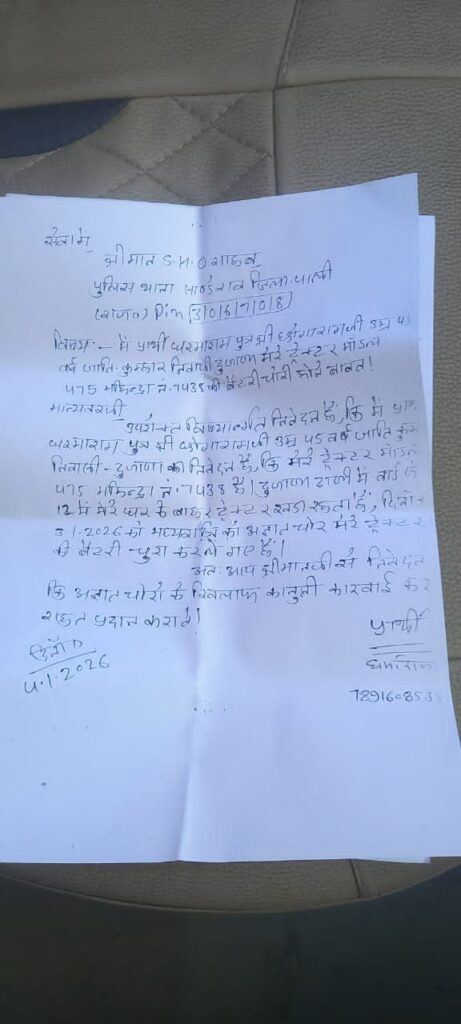 सेवामें
श्रीमान S.H.O साहब
पुलिस थाना साण्डेराव जिला-पाली
(राज०) Pin 306708
विषय:- में प्रार्थी धरमाराम पुत्र श्री छोगारामजी उम्र 45
वर्ष जाति-कुम्हार निवासी दुजाणा मेरे ट्रेक्टर मॉडल
475 महिन्द्रा नं.7438 की बैटरी चोरी होने बाबत!
मान्यवरजी
उपरोक्त विषयान्तर्गत निवेदन है, कि में
धरमाराम पुत्र श्री छोगारामजी उम्र 45 वर्ष जाति
निवासी-दुजाणा का निवेदन है, कि मेरे ट्रेक्टर मॉडल
475 महिन्द्रा नं.7438 है। दुजाणा ढाणी में वार्ड नं
12 में मेरे घर के बाहर ट्रेक्टर खडा रहता है,
3.1.2026 को मध्यरात्रि को अज्ञात चोर मेरे ट्रेक्टर
की बैटरी चुरा कर ले गए है!
अतः आप श्रीमानजी से निवेदन
कि अज्ञात चोरो के खिलाफ कानुनी कारवाई कर
राहत प्रदान करावे!
प्रार्थी
दिनांक
4.1.2026
धर्माराम
7891608535